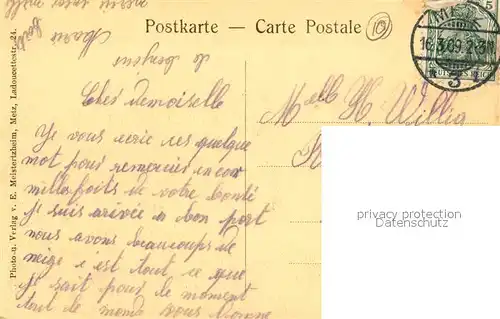 Postkarte – Carte Postale
10
5
METZ
16.3.09.2-3N
* 3 *
DEUTSCHES REICH
Photo-u. Verlag v. E. Meistertzheim, Metz, Ladoucettestr. 24.
le bonjour
Cher demoiselle
Je vous ecrie ces quelque
mot pour remercier encor
millefoits de votre bonté
je suis arrivée a bon port
nous avons beaucoups de
neige c est tout ce que
je sait pour le moment
tout le monde vous donne
Melle H. Willig
privacy protection
Datenschutz